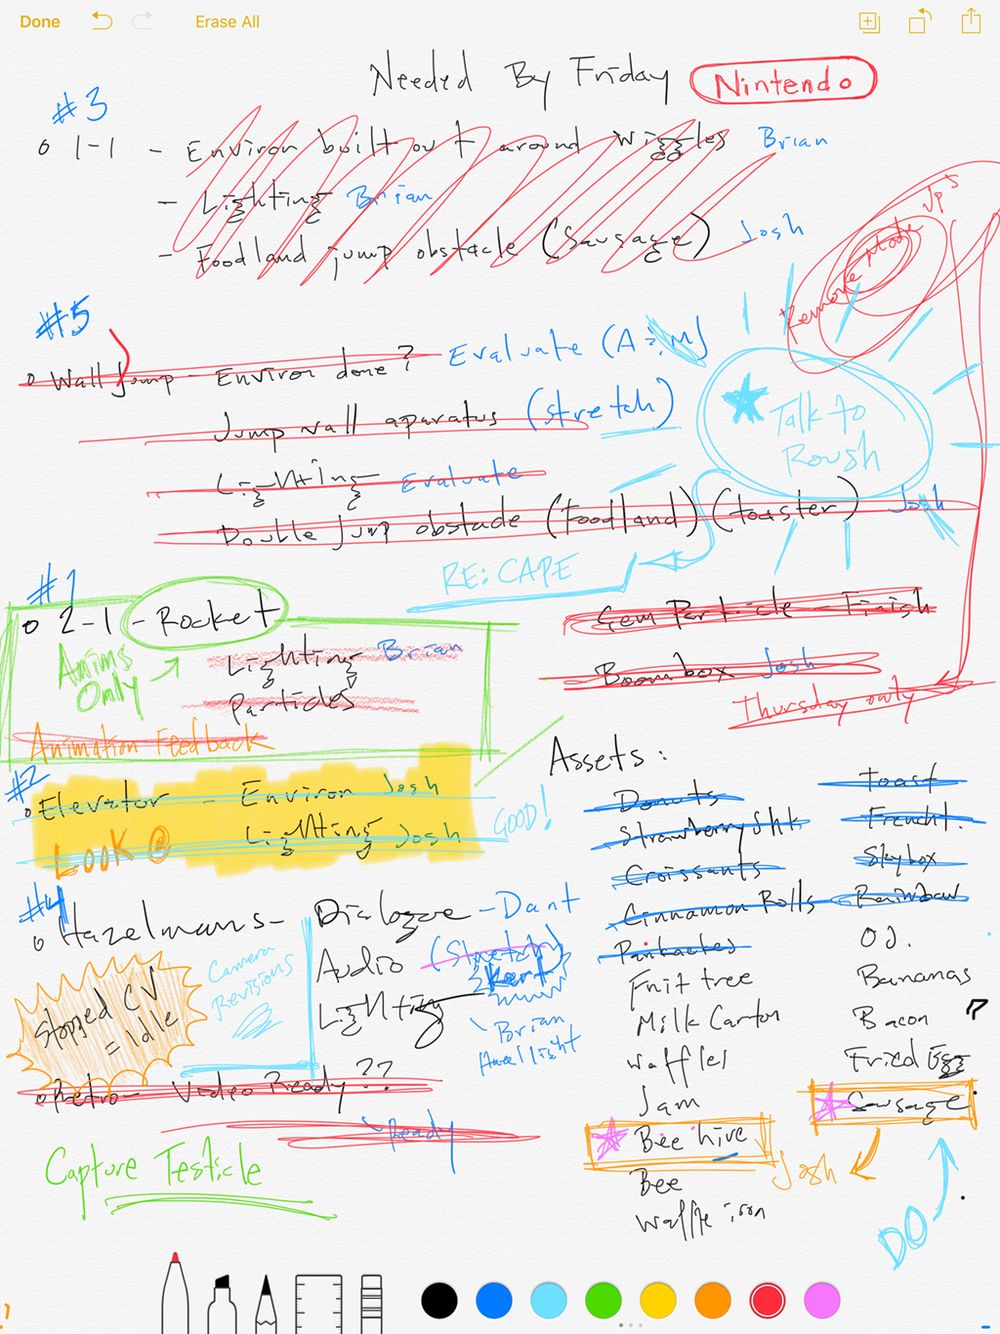 Done
Erase All
Needed By Friday Nintendo
#3
1-1 - Environ built out around wiggles Brian
- Lighting Brian
- Foodland jump obstacle (Sausage) Josh
Remove Mode
#5
Wall Jump - Environ done? Evaluate
Jump wall apparatus (stretch)
Lighting Evaluate
Double Jump obstacle (Foodland) (toaster) Josh
Talk to
Roush
RE: CAPE
#1
2-1 - Rocket
Anims
Only
Lighting Brian
Particles
Animation Feedback
Gem Particle - Finish
Boombox Josh
Thursday only
#2
Elevator - Environ Josh
Lighting Josh
LOOK @
GOOD!
#4
Hazelmans - Dialogue - Dant
Audio (Stretch)
Kert
Lighting
Brian
Camera
Revisions
Stopped CV
= Idle
Retro - Video Ready??
Ready
Capture Testicle
Assets:
Donuts
Croissants
Cinnamon Rolls
Pankackes
Fruit tree
Milk Carton
Waffles
Jam
Bee hive
Bee
Waffle iron
Toast
Skybox
Rainbow
OJ.
Bananas
Bacon
Fried Egg
Sausage
Josh
DO